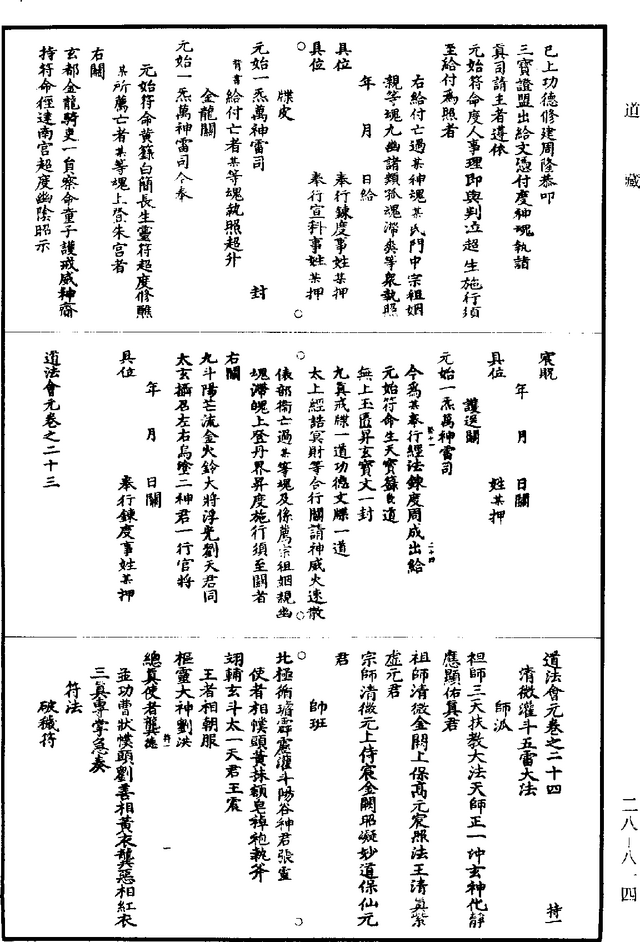 道藏
二八—八一四
已上功德修建周隆恭叩
三寶證盟出給文憑付度神魂執詣
真司請主者遵依
元始符命度人事理即與判泣超生施行須
至給付為照者
右給付亡過某神魂某氏門中宗祖姻
親等魂九幽諸類孤魂滯爽等衆執照
年 月 日給
具位 奉行鍊度事姓某押
具位 奉行宣科事姓某押
牒皮
元始一炁萬神雷司 封
背書給付亡者某等魂執照超升
金龍關
元始一炁萬神雷司今奉
元始符命黄籙白簡長生靈符超度修醮
某所薦亡者某等魂上登朱宫者
右關
玄都金龍騎吏一自察命童子護戒威神齋
持符命徑達南宫超度幽陰昭示
冥貺
年 月 日關
具位 姓某押
護送關
元始一炁萬神雷司
今為某奉行經法鍊度周成出給
元始符命生天寶籙 道
無上玉匱昇玄寶文一封
九真戒牒一道功德文牒一道
太上經誥冥財等合行關請神威火速散
俵部衛亡過某等魂及係薦宗祖姻親幽
魂滯魄上登丹界昇度施行須至關者
右關
九斗陽芒流金火鈴大將浮光劉天君同
太玄攝召左右烏塗二神君一行官將
年 月 日關
具位 奉行鍊度事姓某押
道法會元卷之二十三
道法會元卷之二十四 持一
清微灌斗五雷大法
師派
祖師三天扶教大法天師正一冲玄神化靜
應顯佑真君
祖師清微金闕上保高元宸照法王清真紫
虚元君
宗師清微元上侍宸金闕昭凝妙道保仙元
君
帥班
北極衛璫霹靂灌斗陽谷神君張靈
使者相幞頭黄抹額皂襕袍執斧
翊輔玄斗太一天君王宸
王者相朝服
樞靈大神劉洪
總真使者龔德
並功曹狀幞頭劉善相黄衣龔惡相紅衣
三員專掌急奏
符法
破穢符